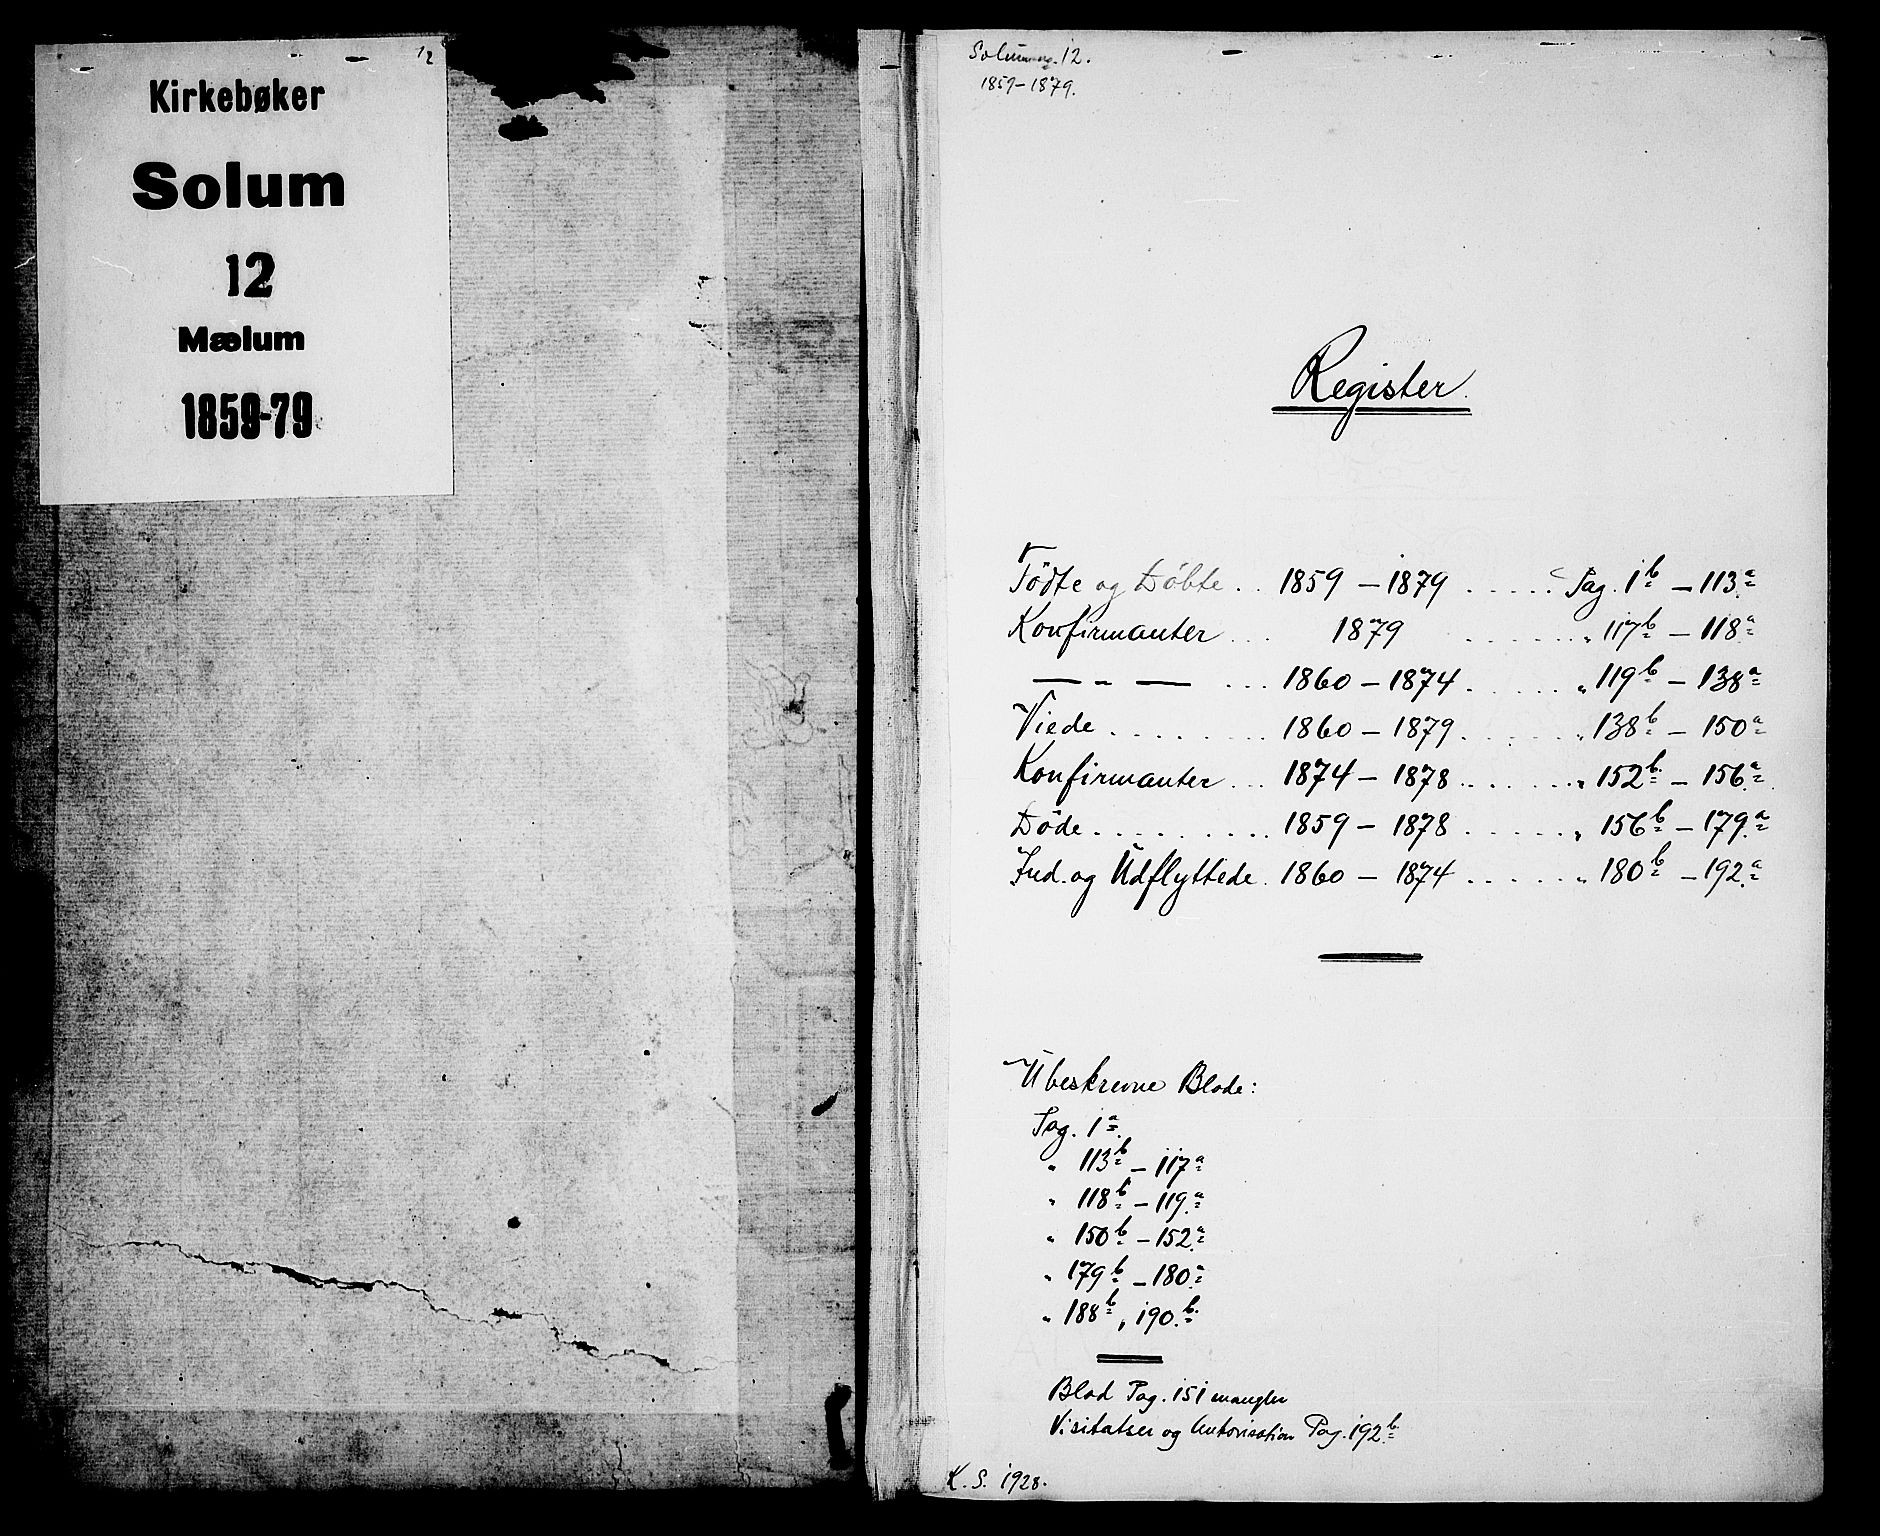 12
Kirkebøker
Solum
12
Mælum
1859-79
12.
1859-1879.
Register.
Födte og Döbte .. 1859 - 1879 ..... Pag. 1b - 113a
Konfirmanter ... 1879 ...... " 117b - 118a
— " — ... 1860 - 1874 ..... " 119b - 138a
Viede ........ 1860 - 1879 ..... " 138b - 150a
Konfirmanter ... 1874 - 1878 ...... " 152b - 156a
Döde ......... 1859 - 1878 ..... " 156b - 179a
Ind. og Udflyttede. 1860 - 1874 ..... " 180b - 192a
Ubeskrevne Blade:
Pag. 1a
" 113b - 117a
" 118b - 119a
" 150b - 152a
" 179b - 180a
" 188b, 190b
Blad Pag. 151 mangler
Visitatser og Autorisation Pag. 192b
K. S. 1928.